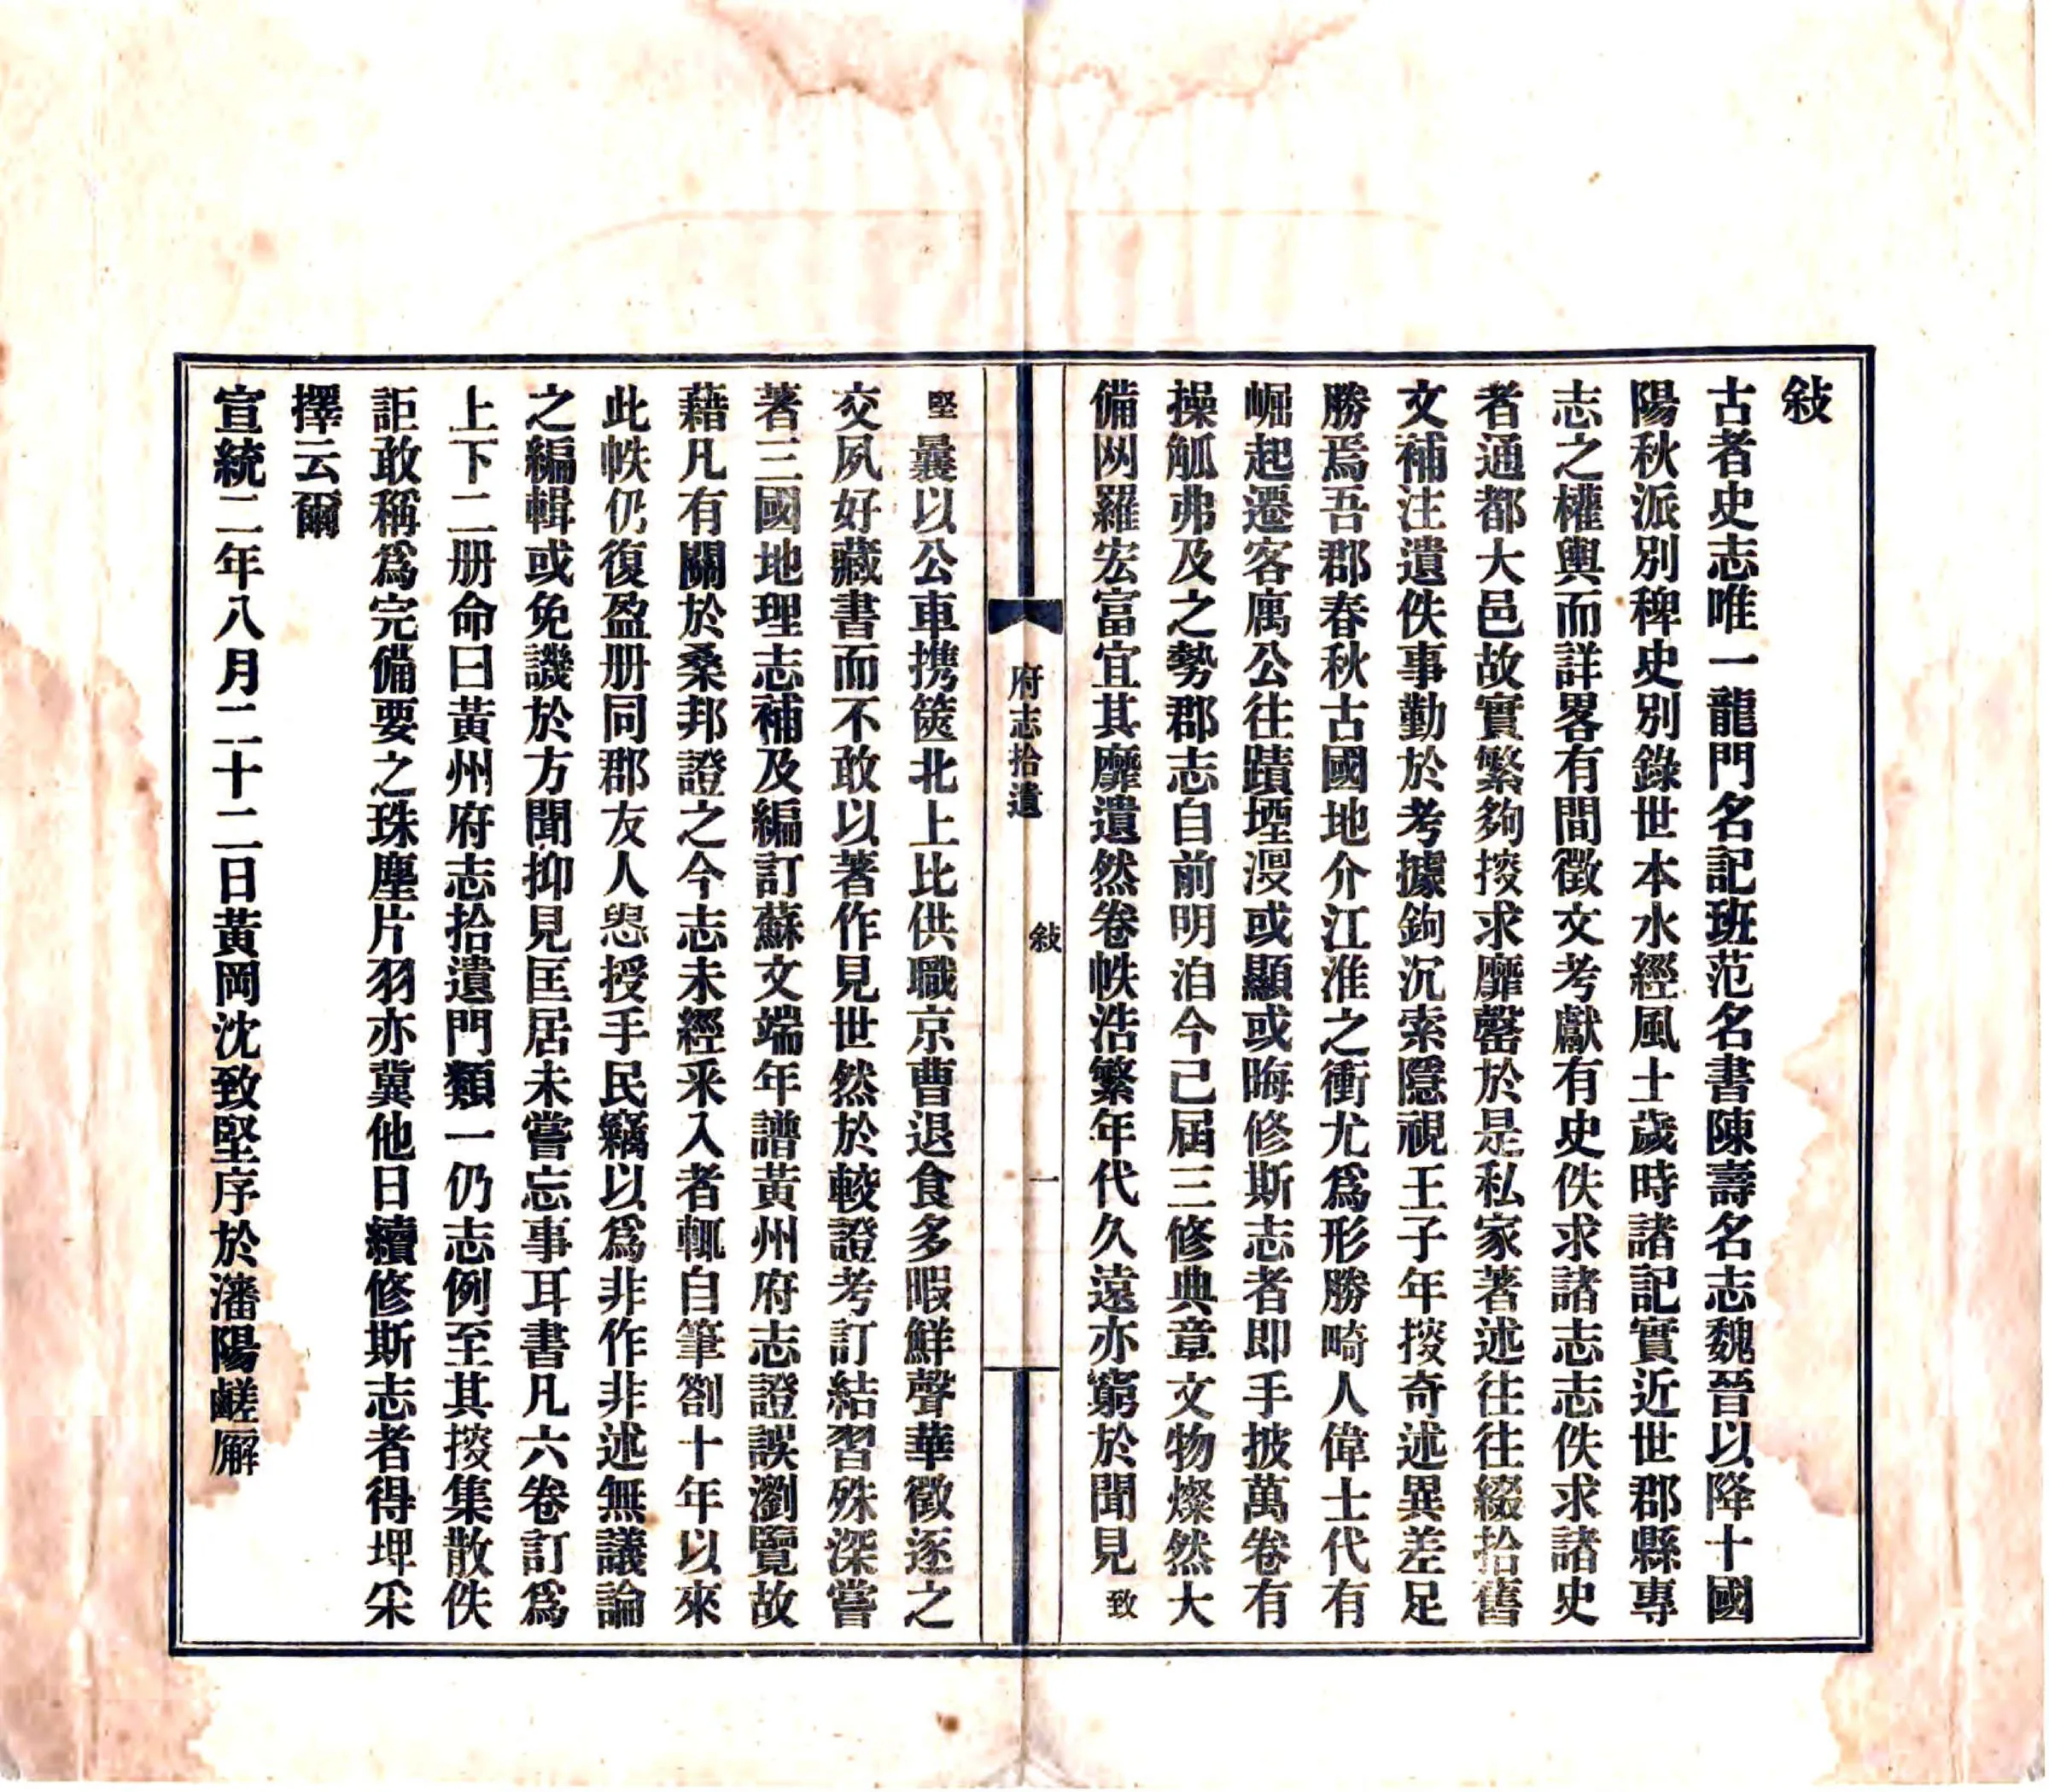 敍
古者史志唯一龍門名記班范名書陳壽名志魏晉以降十國
陽秋派別稗史別錄世本水經風土歲時諸記實近世郡縣專
志之權輿而詳畧有間徵文考獻有史佚求諸志志佚求諸史
者通都大邑故實繁夠搜求靡罄於是私家著述往往綴拾舊
文補注遺佚事勤於考據鉤沉索隱視王子年搜奇述異差足
勝焉吾郡春秋古國地介江淮之衝尤爲形勝畸人偉士代有
崛起遷客寓公往蹟堙漫或顯或晦修斯志者即手披萬卷有
操觚弗及之勢郡志自前明洎今已屆三修典章文物燦然大
備网羅宏富宜其靡遺然卷帙浩繁年代久遠亦窮於聞見致
府志拾遺　敍　一
堅曩以公車携篋北上比供職京曹退食多暇鮮聲華徵逐之
交夙好藏書而不敢以著作見世然於較證考訂結習殊深嘗
著三國地理志補及編訂蘇文端年譜黃州府志證誤瀏覽故
藉凡有關於桑邦證之今志未經采入者輒自筆劄十年以來
此帙仍復盈册同郡友人恿授手民竊以爲非作非述無議論
之編輯或免譏於方聞抑見匡居未嘗忘事耳書凡六卷訂爲
上下二册命曰黃州府志拾遺門類一仍志例至其搜集散佚
詎敢稱爲完備要之珠塵片羽亦冀他日續修斯志者得埤采
擇云爾
宣統二年八月二十二日黃岡沈致堅序於瀋陽鹺廨